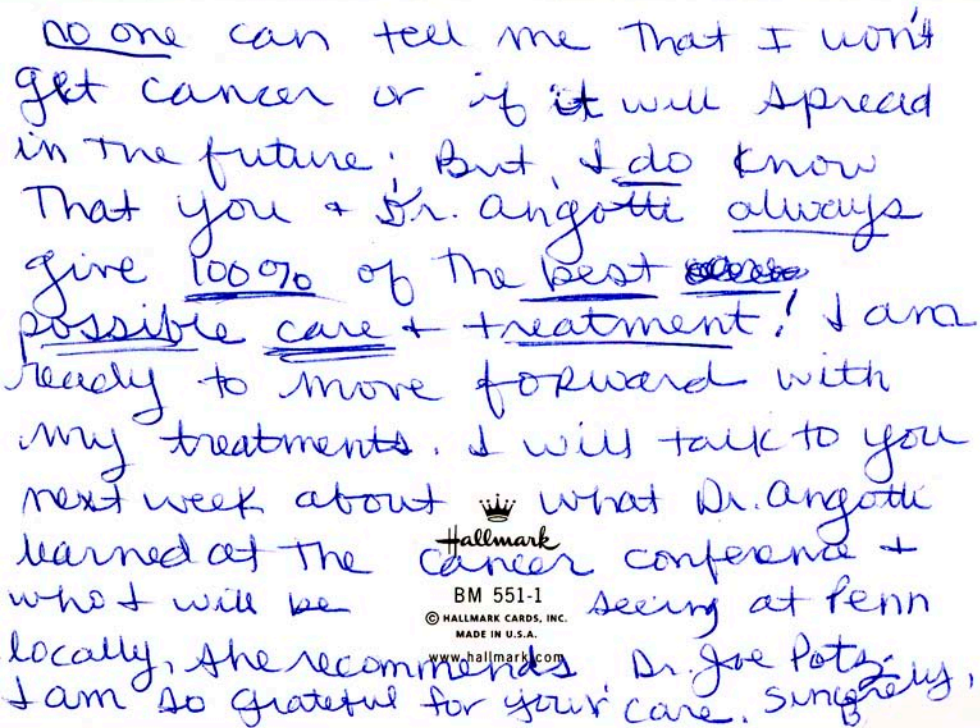 no one can tell me that I won't
get cancer or if it will spread
in the future; But, I do know
That you + Dr. Angotti always
give 100% of the best
possible care + treatment! I am
ready to move forward with
my treatments. I will talk to you
next week about what Dr. Angotti
learned at the cancer conference +
who I will be seeing at Penn
locally, she recommends Dr. Joe Potz.
I am so grateful for your care. Sincerely,
Hallmark
BM 551-1
© HALLMARK CARDS, INC.
MADE IN U.S.A.
www.hallmark.com